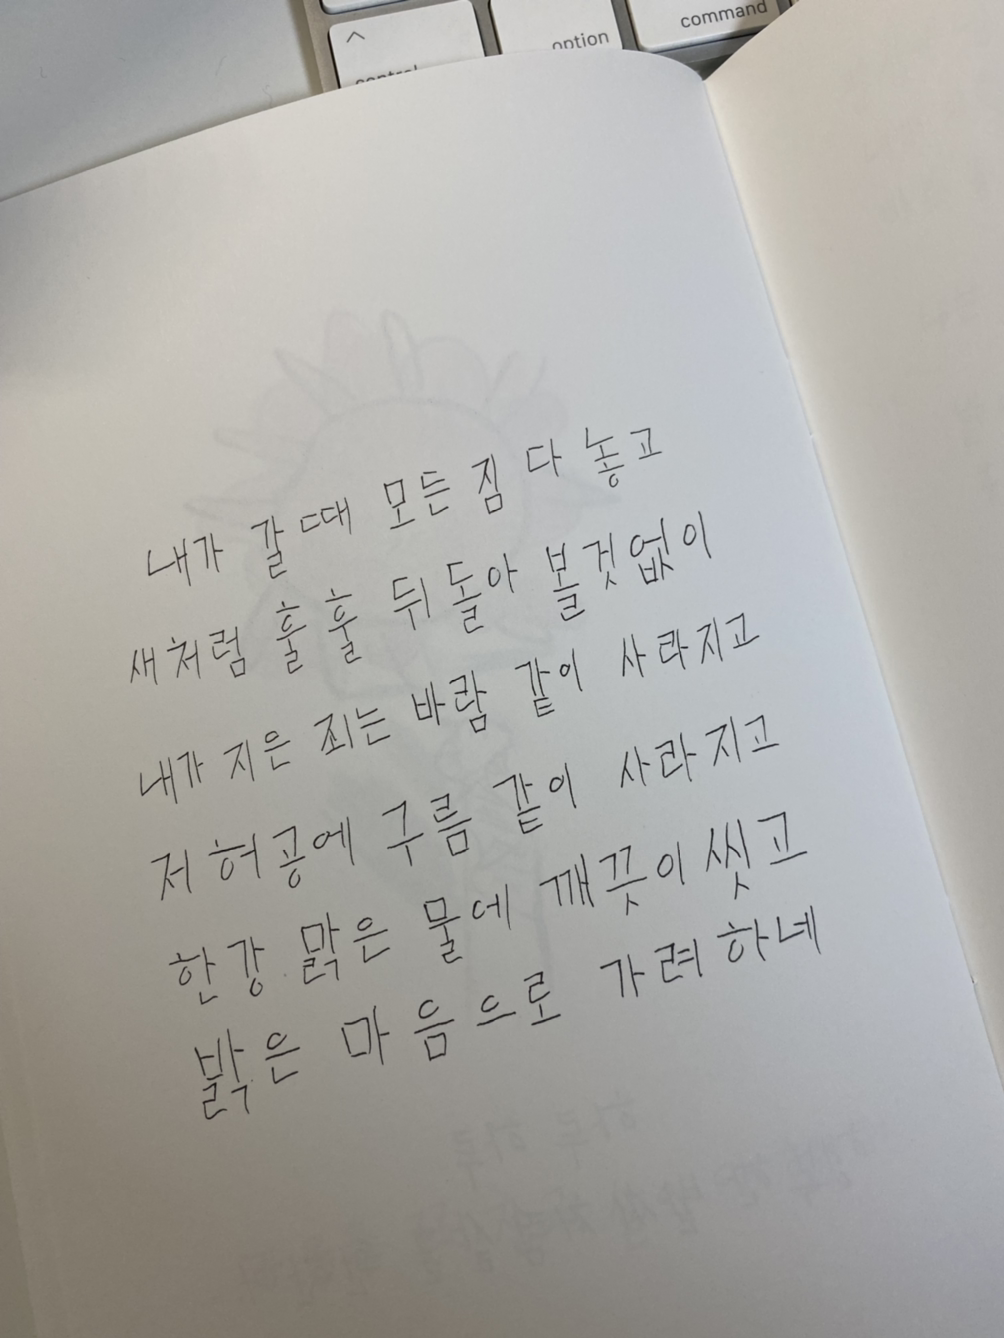 ^
control
option
command
내가 갈때 모든 짐 다 놓고
새처럼 훌훌 뒤돌아 볼것없이
내가 지은 죄는 바람 같이 사라지고
저 허공에 구름 같이 사라지고
한강 맑은 물에 깨끗이 씻고
밝은 마음으로 가려하네